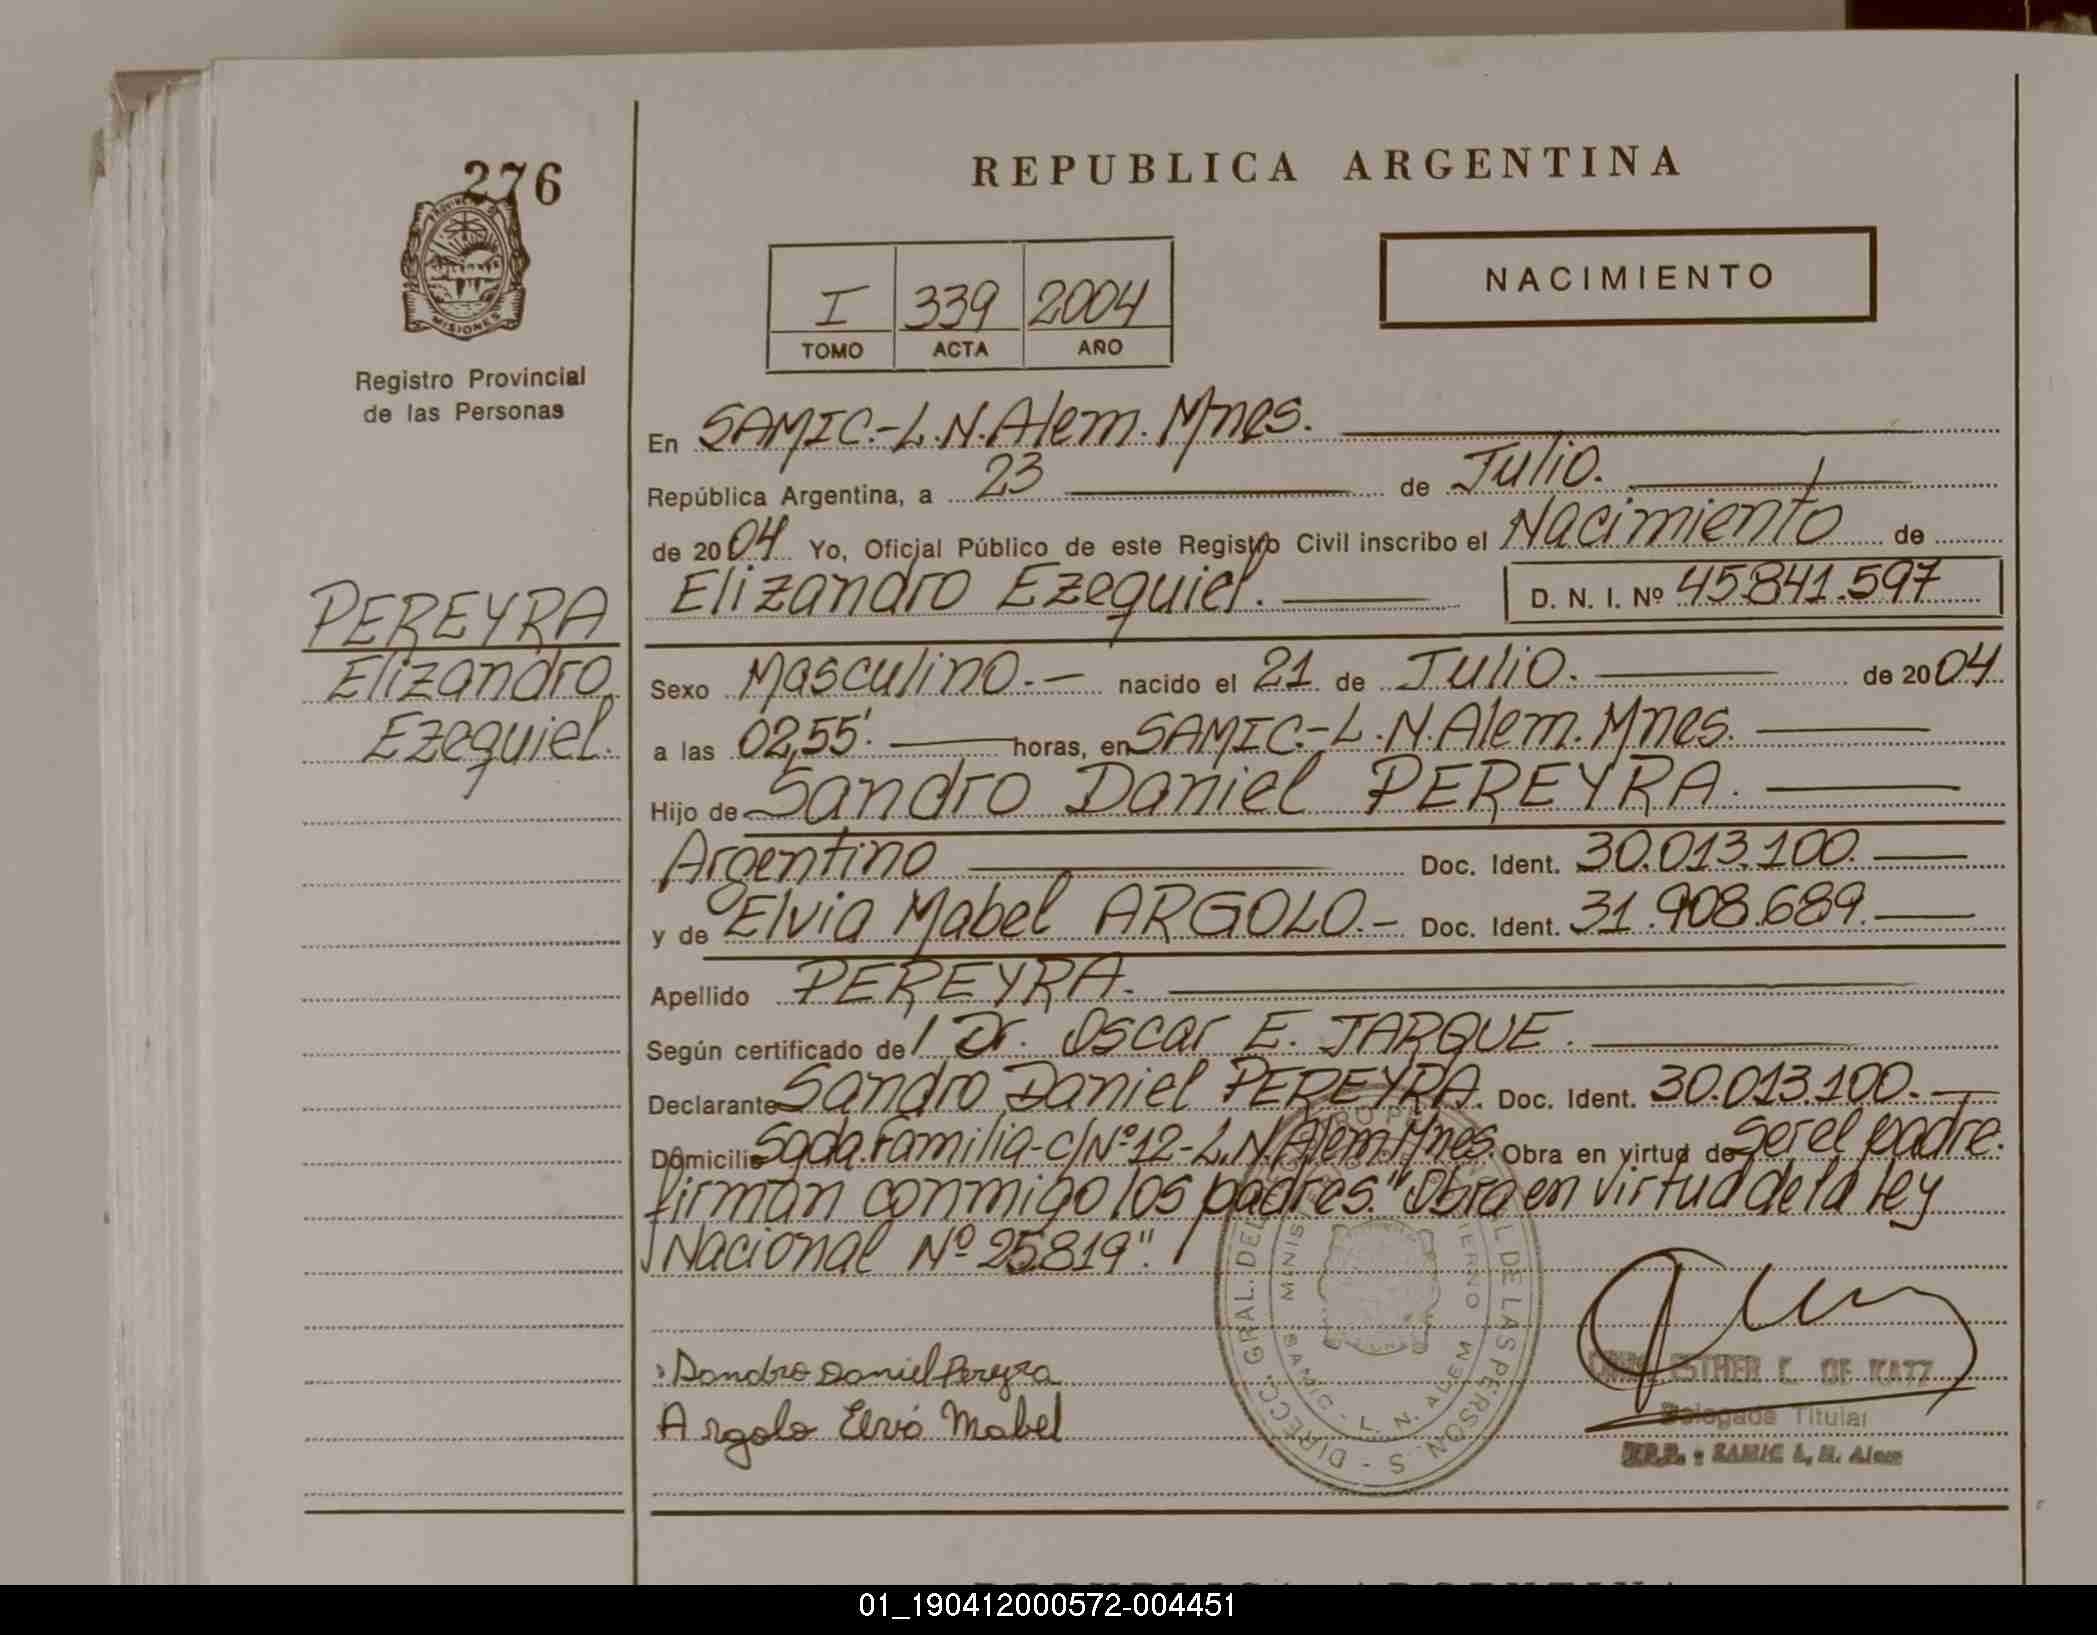 276
PROVINCIA DE
MISIONES
Registro Provincial
de las Personas
REPUBLICA ARGENTINA
NACIMIENTO
I 339 2004
TOMO ACTA AÑO
En SAMIC.-L.N.Alem.Mnes.
República Argentina, a 23 de Julio.
de 2004 Yo, Oficial Público de este Registro Civil inscribo el Nacimiento de
Elizandro Ezequiel. D. N. I. Nº 45.841.597
PEREYRA
Elizandro
Ezequiel.
Sexo Masculino.- nacido el 21 de Julio. de 2004
a las 02,55'. horas, en SAMIC.-L.N.Alem.Mnes.
Hijo de Sandro Daniel PEREYRA.
Argentino Doc. Ident. 30.013.100.
y de Elvia Mabel ARGOLO.- Doc. Ident. 31.908.689.
Apellido PEREYRA.
Según certificado de/ Dr. Oscar E. JARQUE.
Declarante Sandro Daniel PEREYRA. Doc. Ident. 30.013.100.-
Domicilio Sgda.Familia-c/Nº12-L.N.Alem Mnes. Obra en virtud de ser el padre.
firman conmigo los padres."Obra en virtud de la ley
Nacional Nº 25819".
Sandro Daniel Pereyra
Argolo Elvia Mabel
DIRECC. GRAL. DEL
DE LAS PERSONAS
SAMIC - L. N. ALEM
ESTHER L. DE KATZ
Delegada Titular
R.P.P. - SAMIC L. N. Alem
REPUBLICA ARGENTINA
01_190412000572-004451